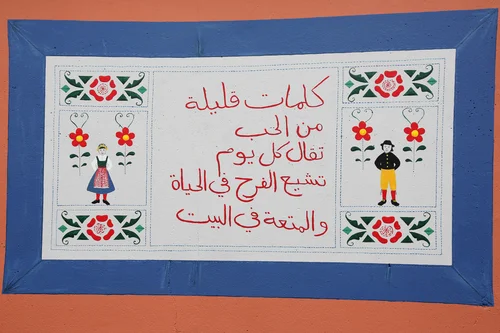 كلمات قليلة
من الحب
تقال كل يوم
تشيع الفرح في الحياة
والمتعة في البيت